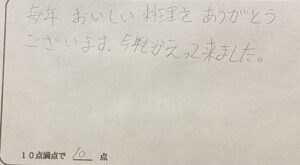 毎年 おいしい 料理を ありがとう
ございます。今年もかえって来ました。
10点満点で 10 点